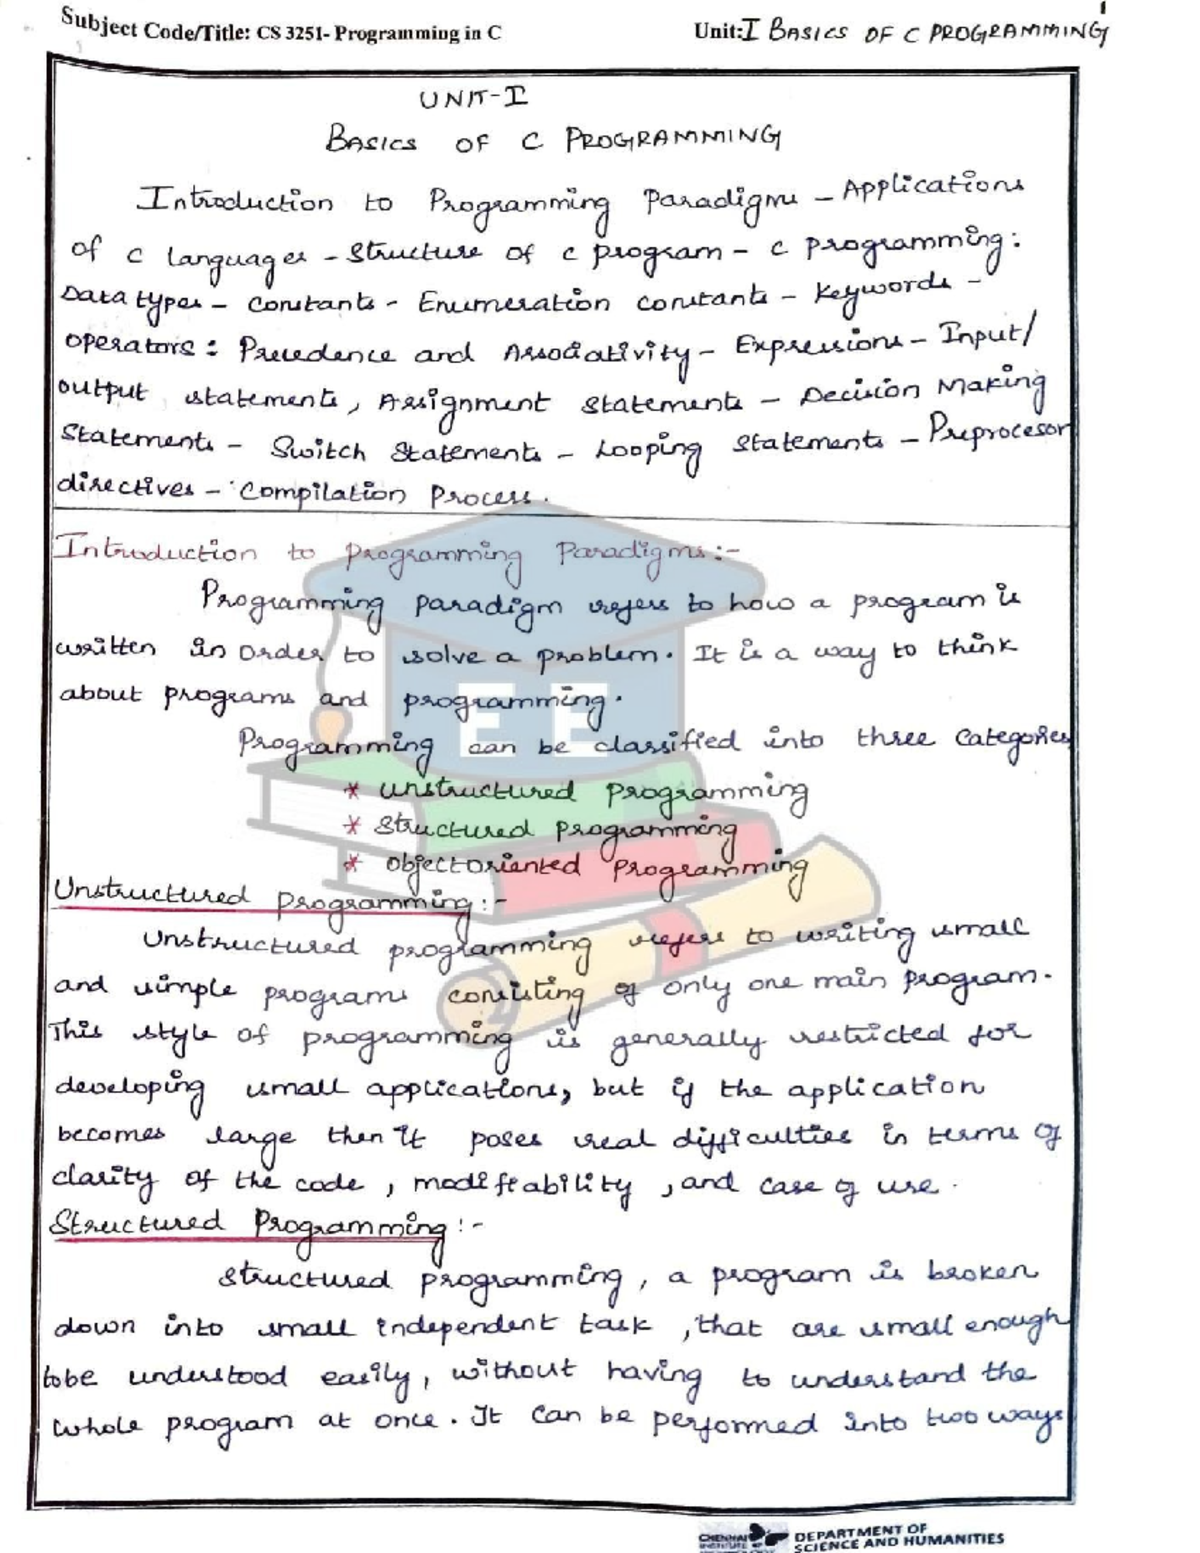 1
Subject Code/Title: CS 3251- Programming in C
Unit: I BASICS OF C PROGRAMMING
UNIT-I
BASICS OF C PROGRAMMING
Introduction to Programming Paradigms - Applications
of C Languages - Structure of C program - C programming:
Data types - constants - Enumeration constants - Keywords -
operators: Precedence and Associativity - Expressions - Input/
output statements, Assignment statements - Decision Making
Statements - Switch Statements - Looping Statements - Preprocesor
directives - Compilation Process.
Introduction to programming Paradigms:-
Programming paradigm refers to how a program is
written in order to solve a problem. It is a way to think
about programs and programming.
EE
Programming can be classified into three categories
* unstructured programming
* structured programming
* object oriented programming
Unstructured programming:-
Unstructured programming refers to writing small
and simple programs consisting of only one main program.
This style of programming is generally restricted for
developing small applications, but if the application
becomes large then it poses real difficulties in terms of
clarity of the code, modifiability, and ease of use.
Structured Programming:-
structured programming, a program is broken
down into small independent task, that are small enough
tobe understood easily, without having to understand the
whole program at once. It can be performed into two ways
CHENNAI INSTITUTE OF
DEPARTMENT OF
SCIENCE AND HUMANITIES